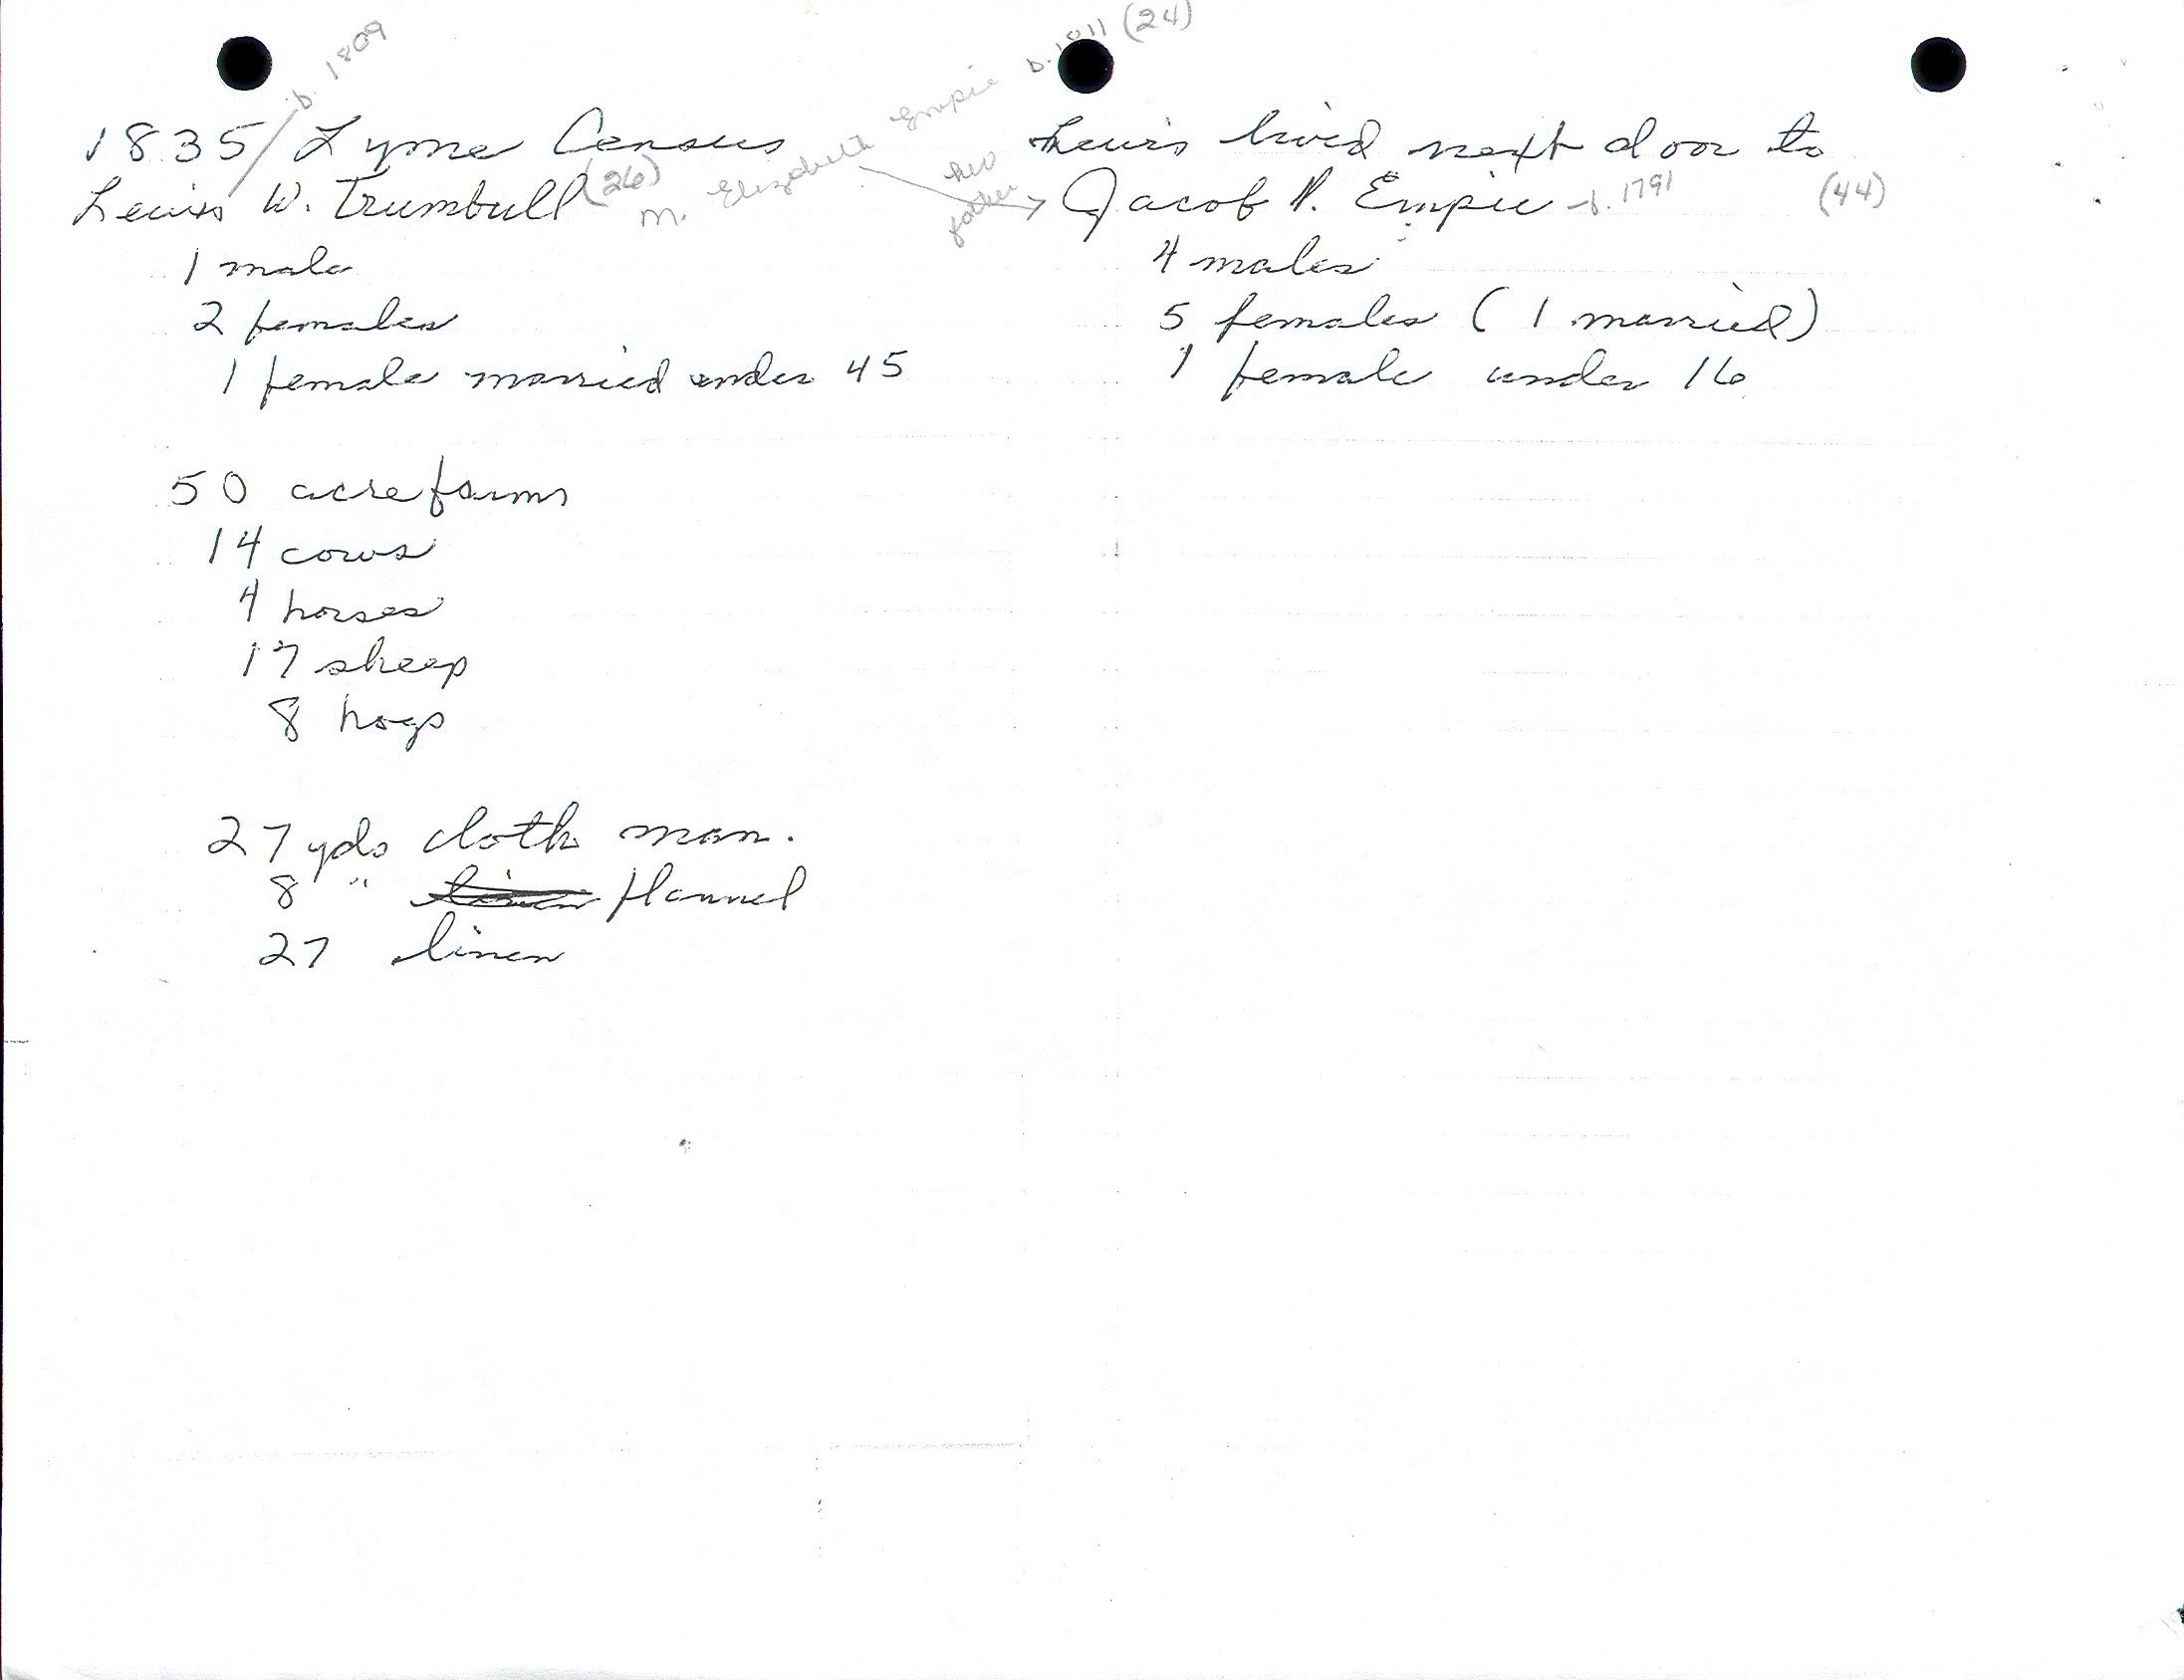 b. 1809
1835 Lyme Census
Lewis W. Trumbull (26)
m. Elizabeth Empie b. 1811 (24)
1 male
2 females
1 female married under 45
50 acre farm
14 cows
4 horses
17 sheep
8 hogs
27 yds cloth man.
8 " linen flannel
27 linen
Lewis lived next door to
her
father
Jacob P. Empie b. 1791 (44)
4 males
5 females (1 married)
1 female under 16